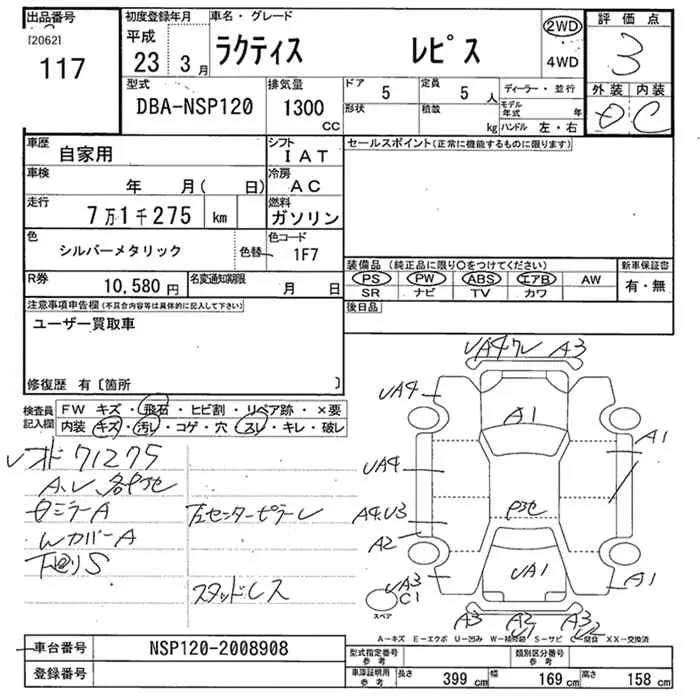 出品番号
[2062]
117
初度登録年月
平成
23 3月
車名・グレード
ラクティス レピス
2WD
4WD
評価点
3
外装 内装
D C
型式
DBA-NSP120
排気量
1300
CC
ドア 5
定員 5 人
形状
積数
kg
ディーラー・並行
モデル年式 年
ハンドル 左・右
車歴
自家用
シフト
IAT
セールスポイント(正常に機能するものに限ります)
車検
年 月( 日)
冷房
AC
走行
7万1千275 km
燃料
ガソリン
色
シルバーメタリック
色替
色コード
1F7
装備品 (純正品に限り〇をつけてください)
新車保証書
PS PW ABS エアB AW
有・無
SR ナビ TV カワ
R券
10,580円
名変通知期限
月 日
後日品
注意事項申告欄(不具合内容等は具体的に記入して下さい)
ユーザー買取車
修復歴 有〔箇所 〕
検査員
記入欄
FW キズ・飛石・ヒビ割・リペア跡・×要
内装 キズ・汚レ・コゲ・穴・スレ・キレ・破レ
71275
ミラーA
WカバーA
下廻りS
左センターピラーレ
スタッドレス
UA4 ワレ A3
UA4
A1
A1
UA4
A4.U3
A2
UA1
UA3
C1
スペア
A1
A3
A3
A-キズ E-エクボ U-凹み W-補修跡 S-サビ C-腐食 XX-交換済
車台番号
NSP120-2008908
登録番号
型式指定番号
参考
類別区分番号
参考
車庫証明用
参考
長さ 399 cm
幅 169 cm
高さ 158 cm